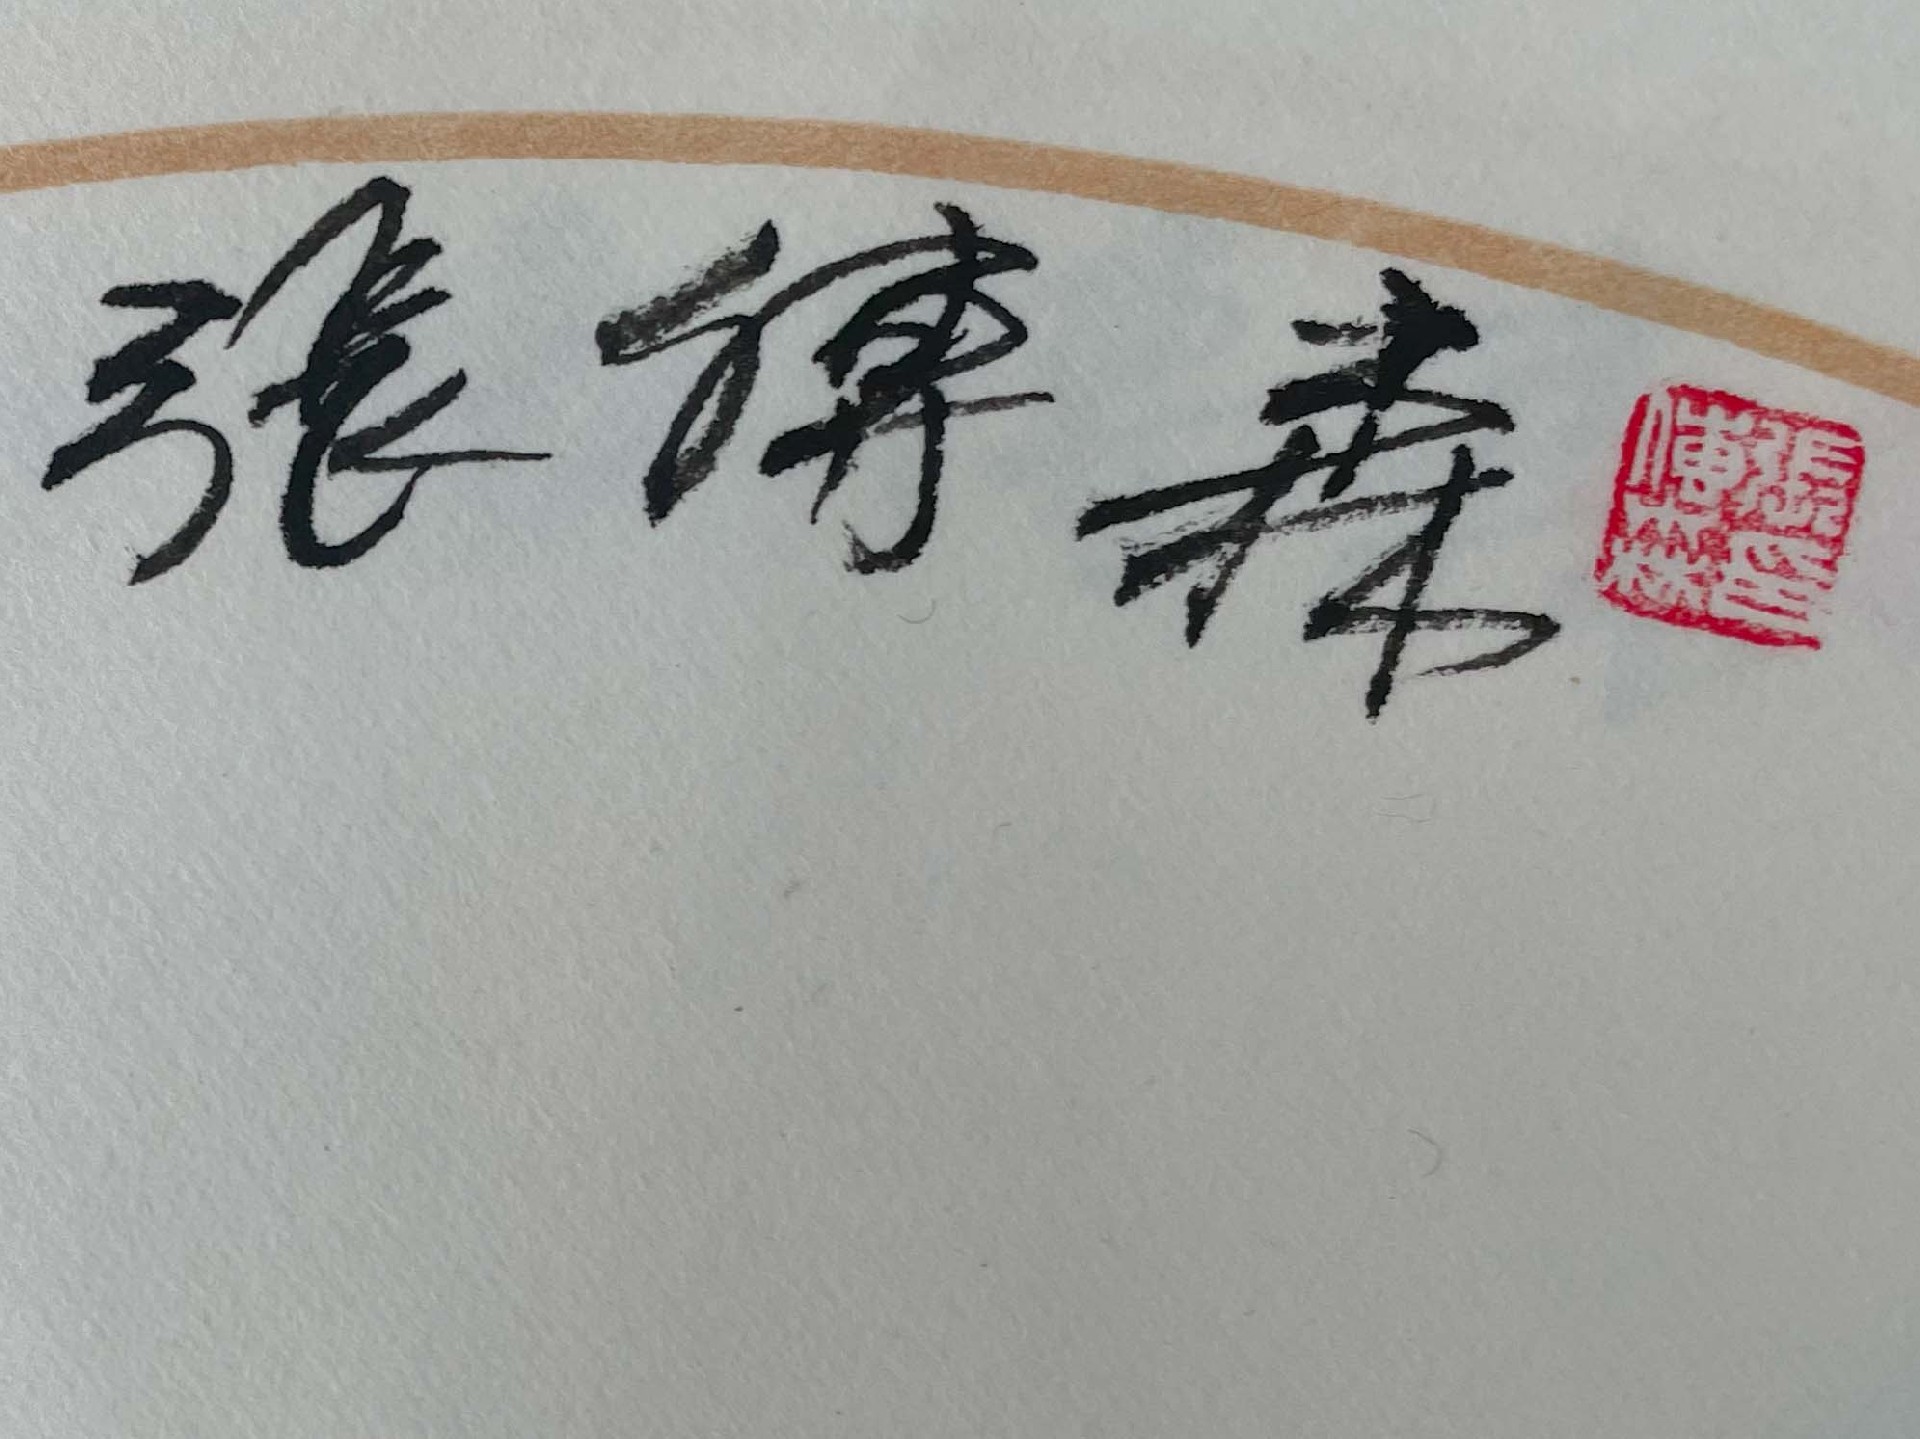 張傳森
張傳森印